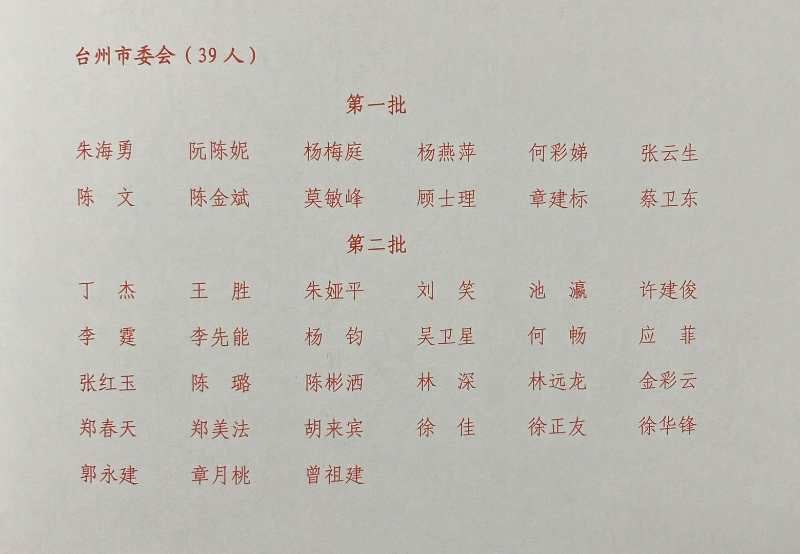 台州市委会（39人）
第一批
朱海勇 阮陈妮 杨梅庭 杨燕萍 何彩娣 张云生
陈 文 陈金斌 莫敏峰 顾士理 章建标 蔡卫东
第二批
丁 杰 王 胜 朱娅平 刘 笑 池 瀛 许建俊
李 霆 李先能 杨 钧 吴卫星 何 畅 应 菲
张红玉 陈 璐 陈彬洒 林 深 林远龙 金彩云
郑春天 郑美法 胡来宾 徐 佳 徐正友 徐华锋
郭永建 章月桃 曾祖建